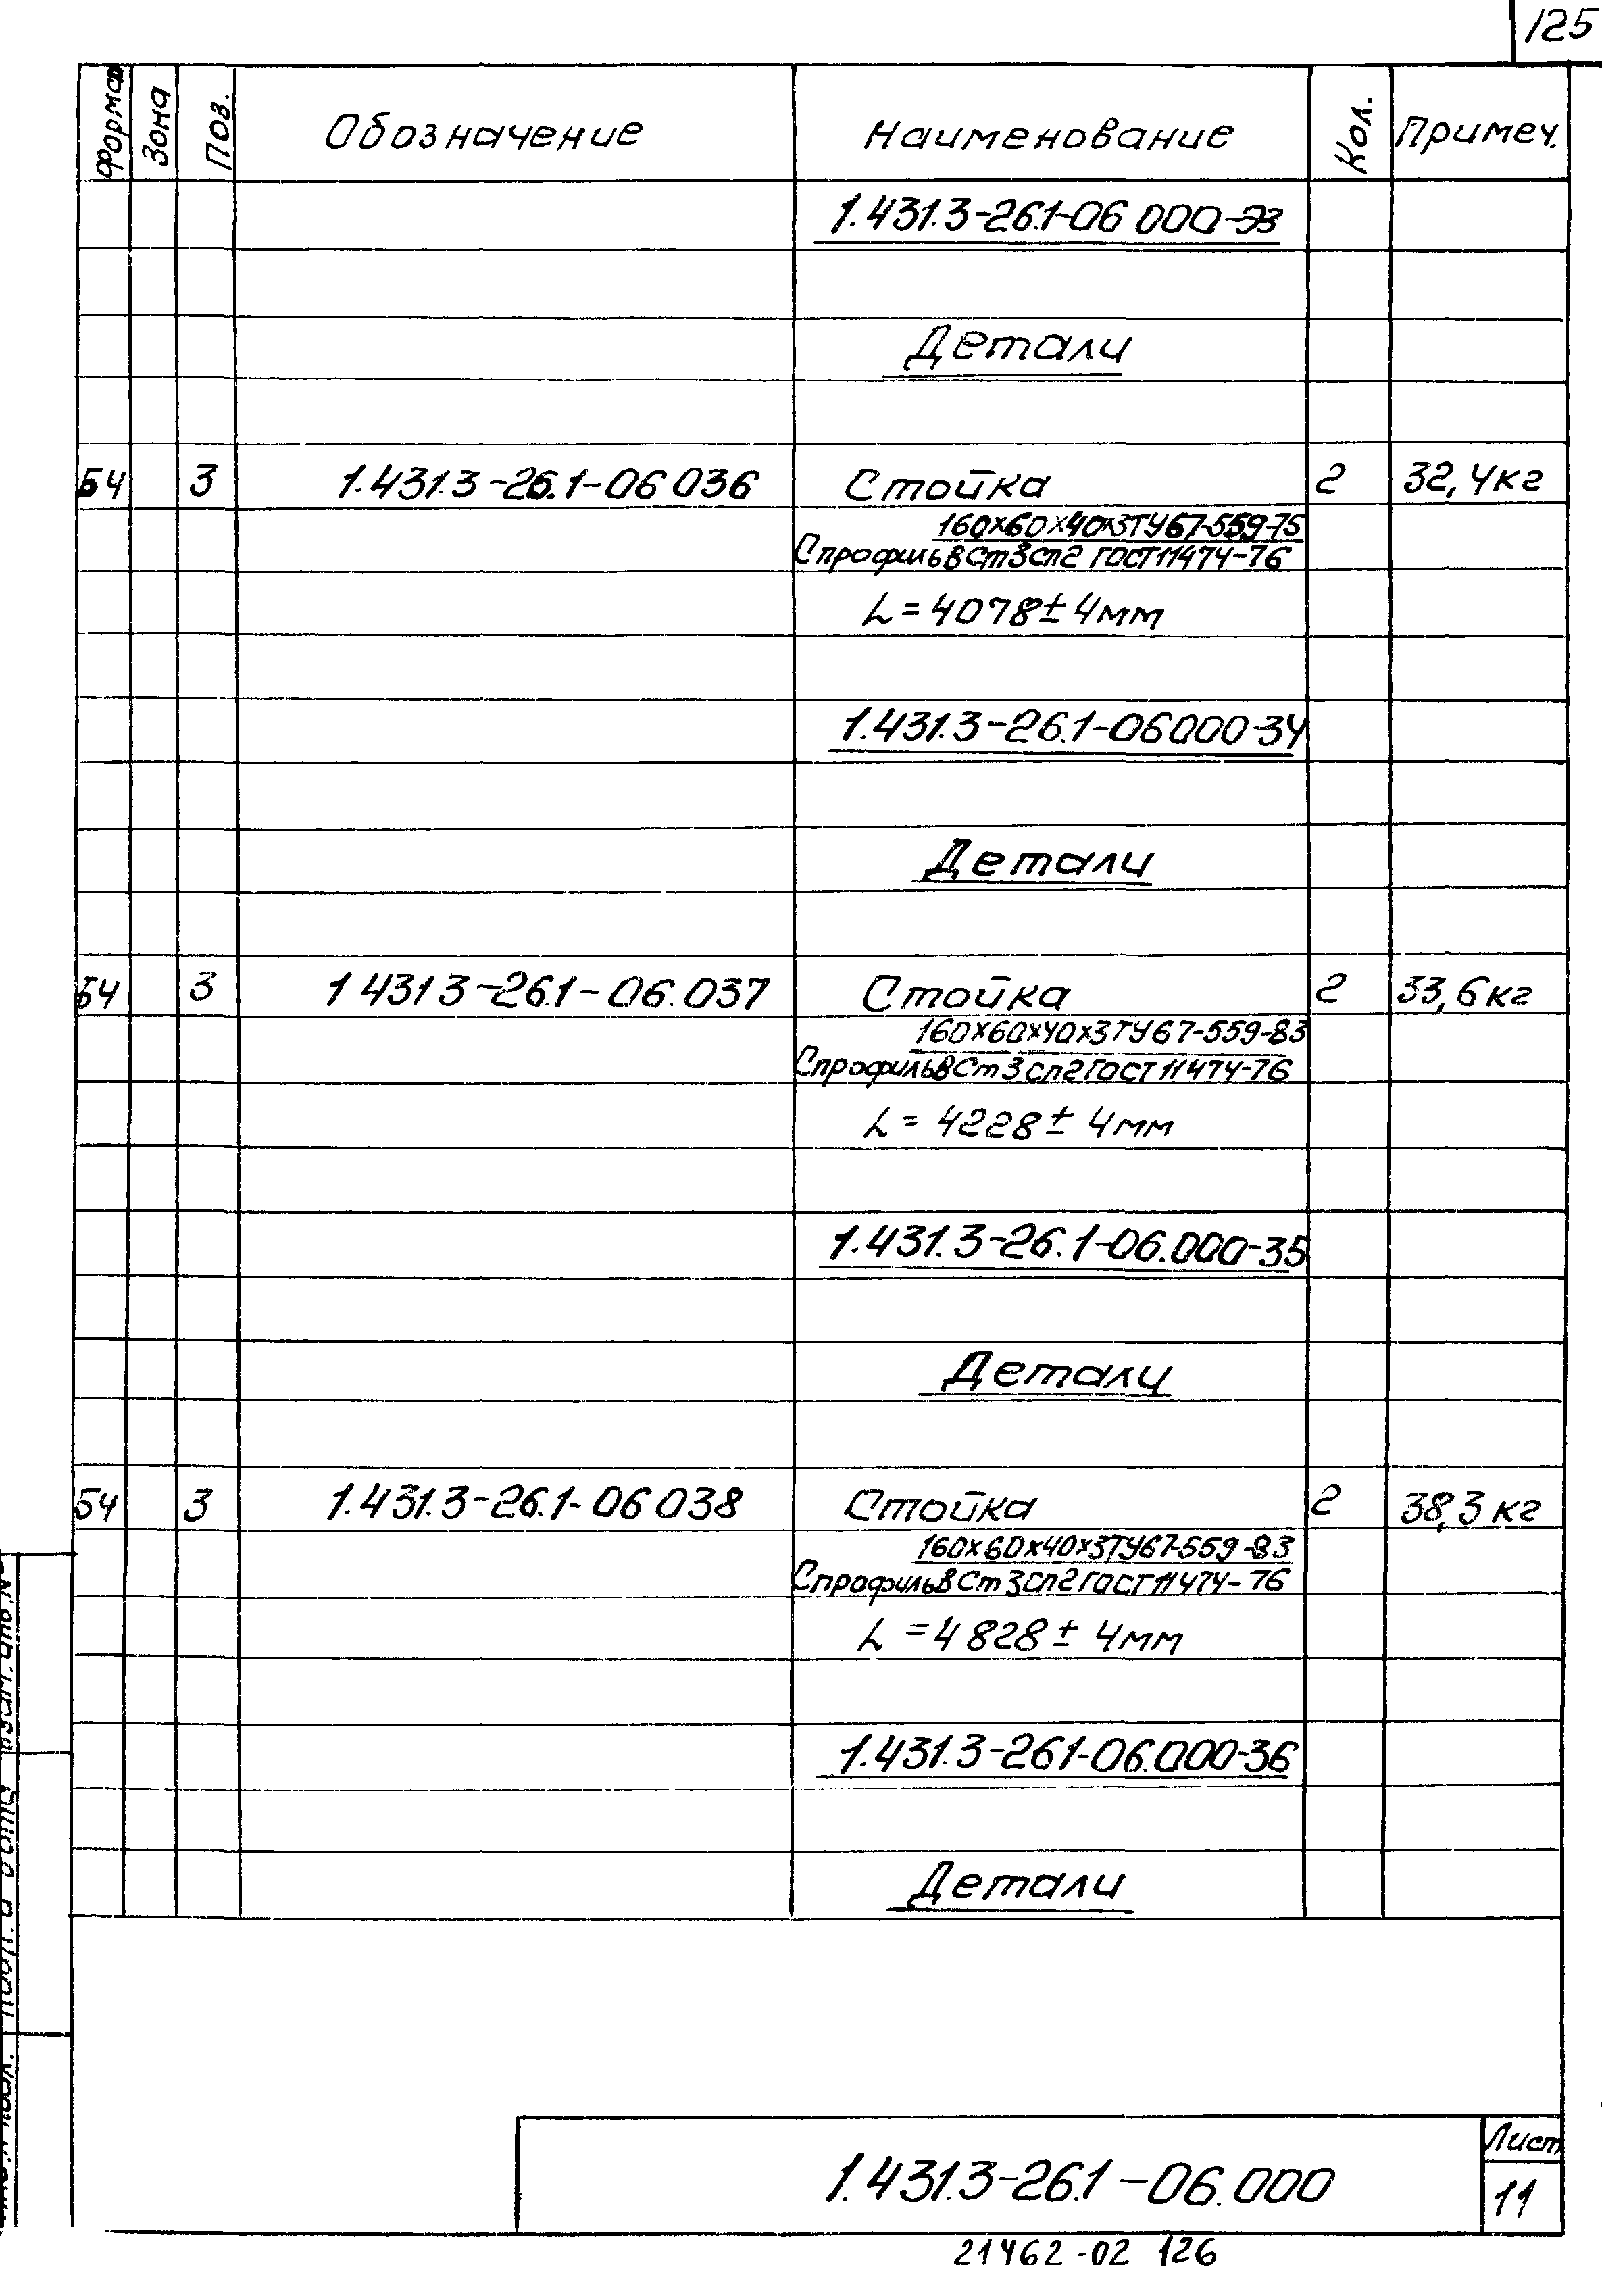 125
Формат Зона Поз. Обозначение Наименование Кол. Примеч.
1.431.3-26.1-06 000-33
Детали
БЧ 3 1.431.3-26.1-06 036 Стойка 2 32,4кг
160х60х40х3ТУ67-559-75
С профильВСт3сп2 ГОСТ11474-76
L=4078±4мм
1.431.3-26.1-06000-34
Детали
БЧ 3 1 431 3-26.1-06.037 Стойка 2 33,6кг
160х60х40х3ТУ67-559-83
СпрофильВСт3сп2ГОСТ11474-76
L= 4228± 4мм
1.431.3-26.1-06.000-35
Детали
БЧ 3 1.431.3-26.1-06 038 Стойка 2 38,3 кг
160х60х40х3ТУ67-559-83
СпрофильВСт3сп2ГОСТ11474-76
L =4828± 4мм
1.431.3-261-06.000-36
Детали
1.431.3-26.1-06.000
Лист
11
21462-02 126